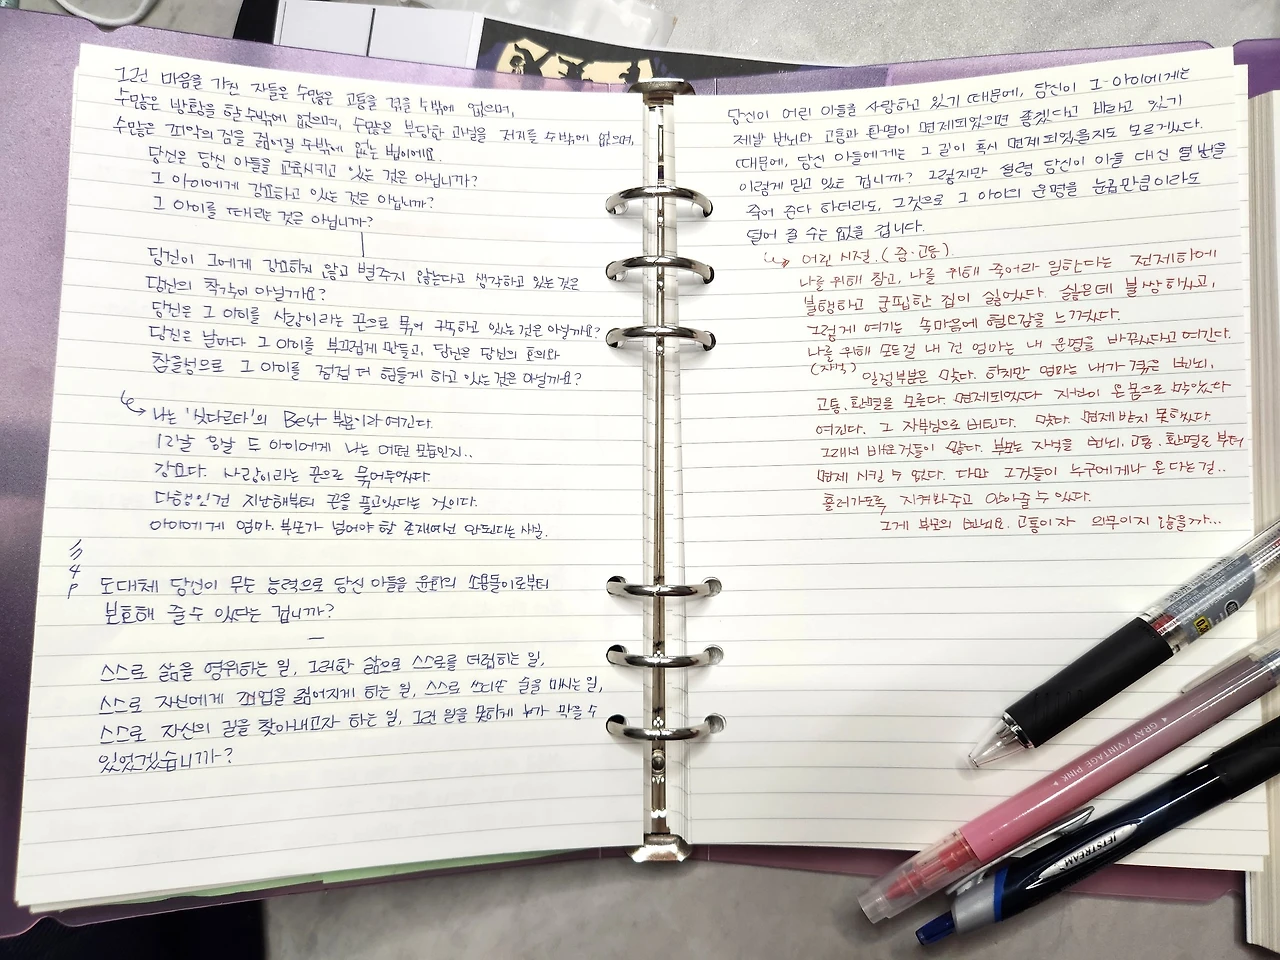 그런 마음을 가진 자들은 수많은 고통을 겪을 수밖에 없으며,
수많은 방황을 할 수밖에 없으며, 수많은 부당한 과실을 저지를 수밖에 없으며,
수많은 죄악의 짐을 짊어질 수밖에 없는 법이에요.
당신은 당신 아들을 교육시키고 있는 것은 아닙니까?
그 아이에게 강요하고 있는 것은 아닙니까?
그 아이를 때리는 것은 아닙니까?
당신이 그에게 강요하지 않고 벌주지 않는다고 생각하고 있는 것은
당신의 착각이 아닐까요?
당신은 그 아이를 사랑이라는 끈으로 묶어 구속하고 있는 것은 아닐까요?
당신은 날마다 그 아이를 부끄럽게 만들고, 당신은 당신의 호의와
참을성으로 그 아이를 점점 더 힘들게 하고 있는 것은 아닐까요?
나는 '싯다르타'의 Best 부분이라 여긴다.
12살 8살 두 아이에게 나는 어떤 모습인지..
강요다. 사랑이라는 끈으로 묶어두었다.
다행인건 지난해부터 끈을 풀고있다는 것이다.
아이에게 엄마. 부모가 넘어야 할 존재여선 안된다는 사실.
도대체 당신이 무슨 능력으로 당신 아들을 윤회의 소용돌이로부터
보호해 줄 수 있다는 겁니까?
스스로 삶을 영위하는 일, 그러한 삶으로 스스로를 더럽히는 일,
스스로 자신에게 죄업을 짊어지게 하는 일, 스스로 쓰디쓴 술을 마시는 일,
스스로 자신의 길을 찾아내고자 하는 일, 그런 일을 못하게 누가 막을 수
있었겠습니까?
당신이 어린 아들을 사랑하고 있기 때문에, 당신이 그 아이에게는
제발 번뇌와 고통과 환멸이 면제되었으면 좋겠다고 바라고 있기
때문에, 당신 아들에게는 그 길이 혹시 면제되었을지도 모르겠다.
이렇게 믿고 있는 겁니까? 그렇지만 설령 당신이 아들 대신 열 번을
죽어 준다 하더라도, 그것으로 그 아이의 운명을 눈곱만큼이라도
덜어 줄 수는 없을 겁니다.
어린 시절. (중·고등)
나를 위해 참고, 나를 위해 죽어라 일한다는 전제하에
불행하고 궁핍한 집이 싫었다. 싫은데 불쌍하고,
그렇게 여기는 속마음에 혐오감을 느꼈다.
나를 위해 모든걸 내 건 엄마는 내 운명을 바꾸었다고 여긴다.
(자식) 일정부분은 맞다. 하지만 엄마는 내가 겪은 번뇌,
고통. 환멸을 모른다. 면제되었다 자신이 온 몸으로 막았다
여긴다. 그 자부심으로 버틴다. 맞다. 면제 받지 못했다.
그래서 배운것들이 많다. 부모는 자식을 번뇌. 고통. 환멸로 부터
면제 시킬 수 없다. 다만 그것들이 누구에게나 온다는걸..
흘러가도록 지켜봐주고 안아줄 수 있다.
그게 부모의 번뇌요. 고통이자 의무이지 않을까...
GRAY / VINTAGE PINK
JETSTREAM